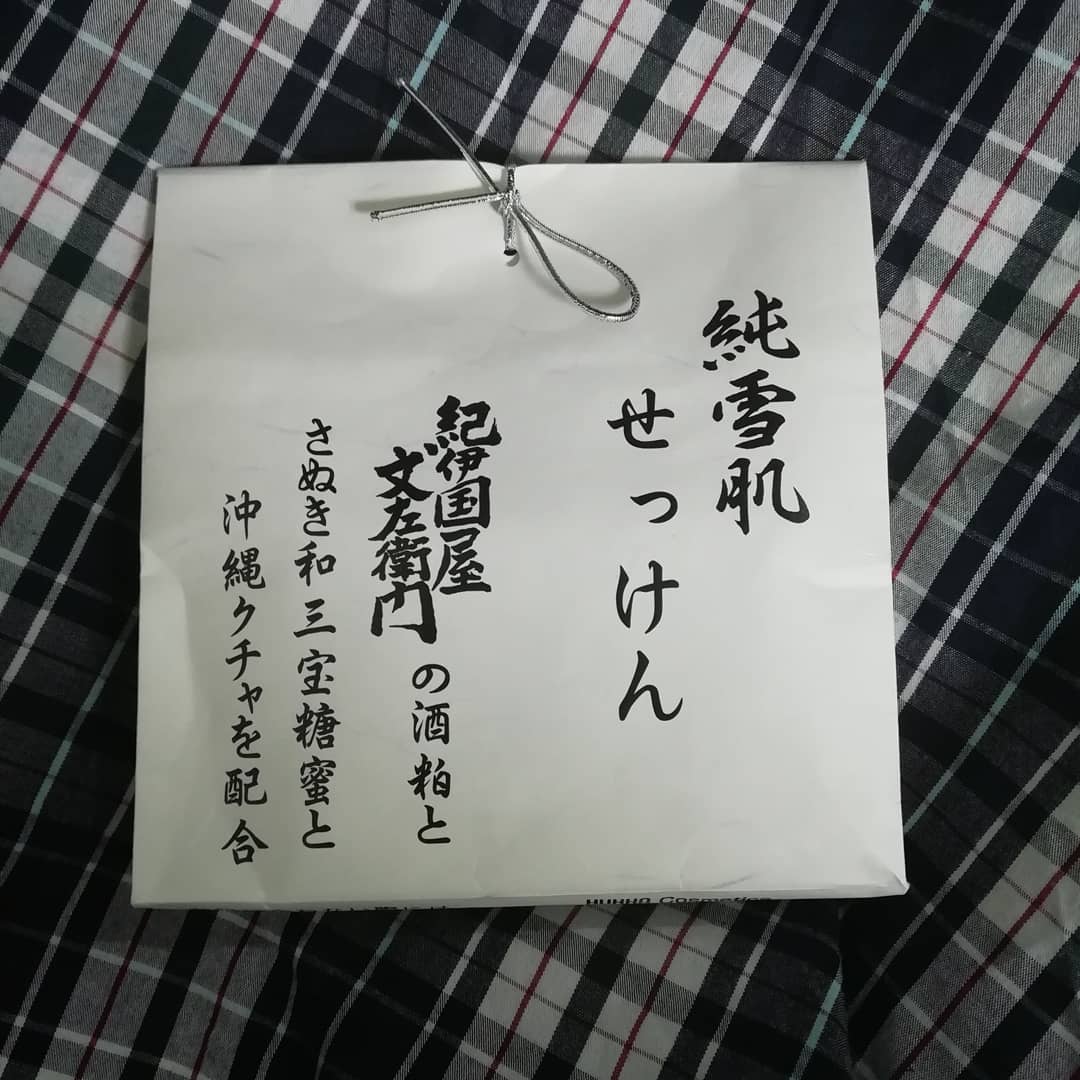 純雪肌
せっけん
紀伊国屋
文左衛門
の酒粕と
さぬき和三宝糖蜜と
沖縄クチャを配合